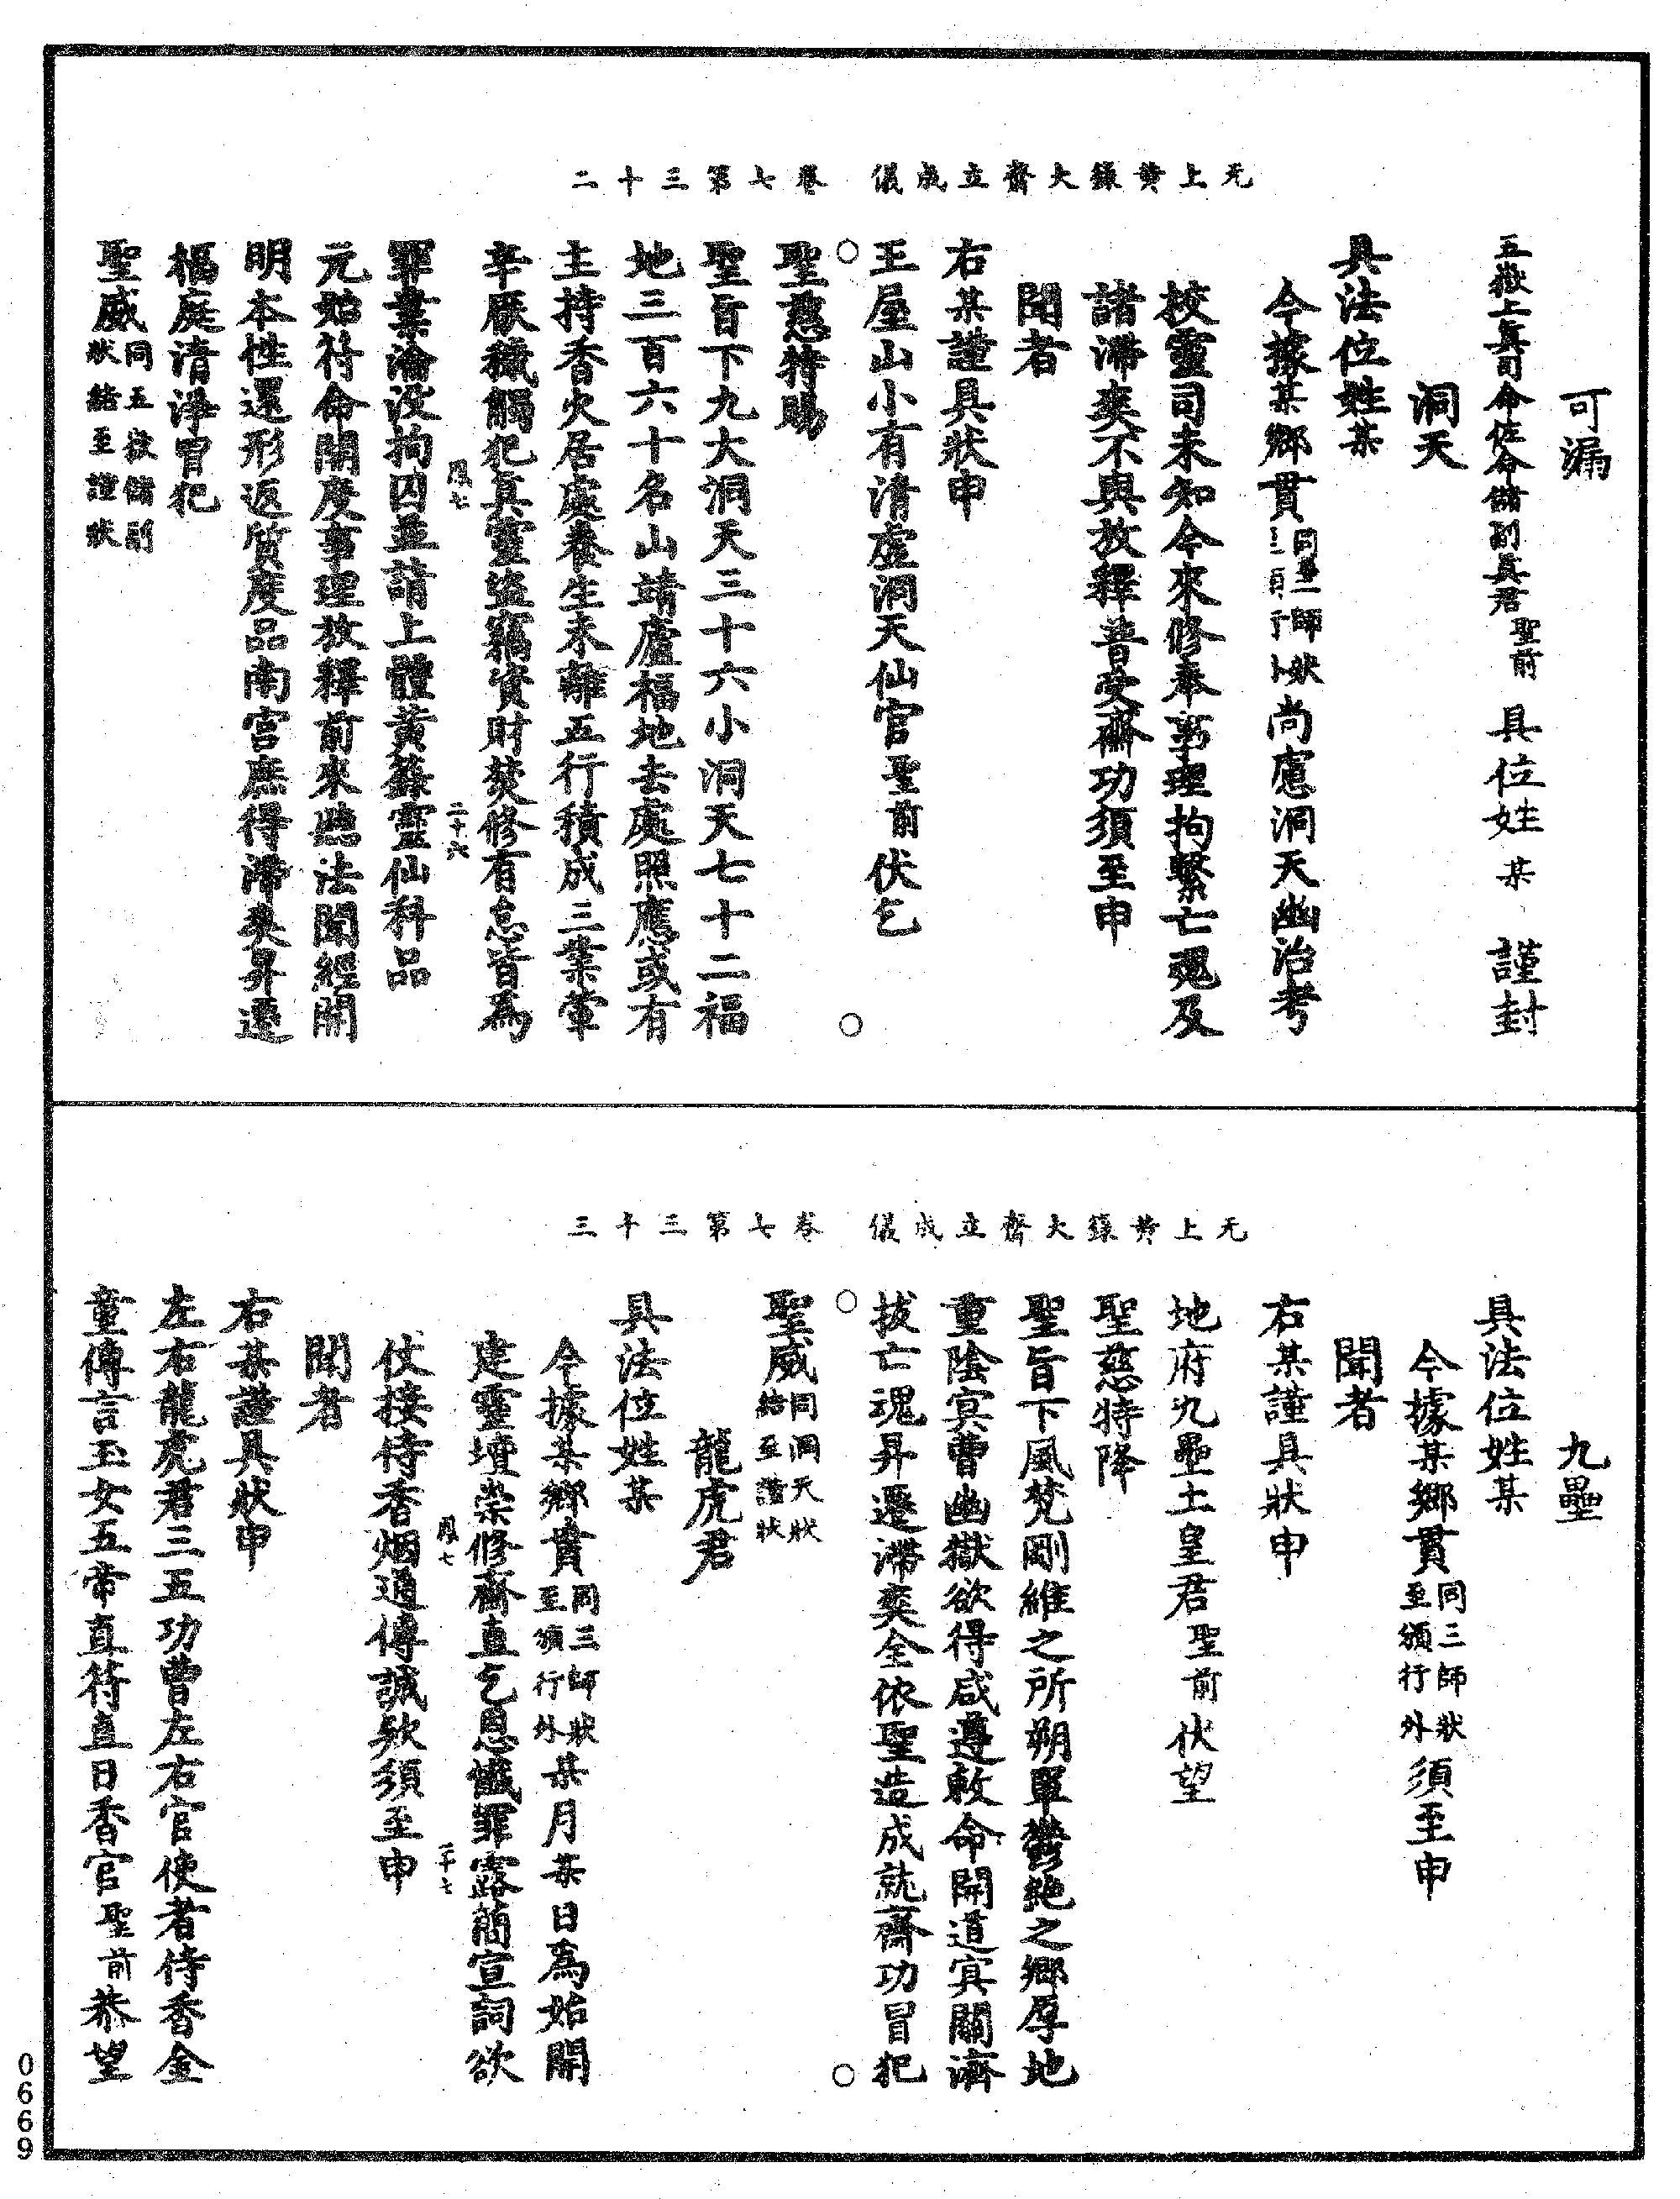 无上黃籙大齋立成儀　卷七第三十二
可漏
五嶽上眞司命佐命儲副眞君聖前　具位姓某　謹封
洞天
具法位姓某
今據某鄉貫同三師狀至頒行外尚慮洞天幽治考
校靈司未知今來修奉事理拘繫亡魂及
諸滯爽不與放釋普受齋功須至申
聞者
右某謹具狀申
王屋山小有清虛洞天仙官聖前伏乞
聖慈特賜
聖旨下九大洞天三十六小洞天七十二福
地三百六十名山靖廬福地去處照應或有
主持香火居處養生未離五行積成三業葷
辛厭穢觸犯真靈盜竊資財焚修有怠皆爲
鳳七　二十六
罪業淪沒拘囚並請上體黃籙靈仙科品
元始符命開度事理放釋前來聽法聞經開
明本性還形返質度品南宮庶得滯爽昇遷
福庭清淨冒犯
聖威同五嶽儲副狀結至謹狀
无上黃籙大齋立成儀　卷七第三十三
九壘
具法位姓某
今據某鄉貫同三師狀至頒行外須至申
聞者
右某謹具狀申
地府九壘土皇君聖前伏望
聖慈特降
聖旨下風梵剛維之所朔單鬱絕之鄉厚地
重陰冥曹幽獄欲得咸遵敕命開道冥關濟
拔亡魂昇遷滯爽全依聖造成就齋功冒犯
聖威同洞天狀結至謹狀
龍虎君
具法位姓某
今據某鄉貫同三師狀至頒行外某月某日爲始開
建靈壇崇修齋直乞恩懺罪露簡宣詞欲
鳳七　二十七
仗接侍香烟通傳誠欵須至申
聞者
右某謹具狀申
左右龍虎君三五功曹左右官使者侍香金
童傳言玉女五帝直符直日香官聖前恭望
0669